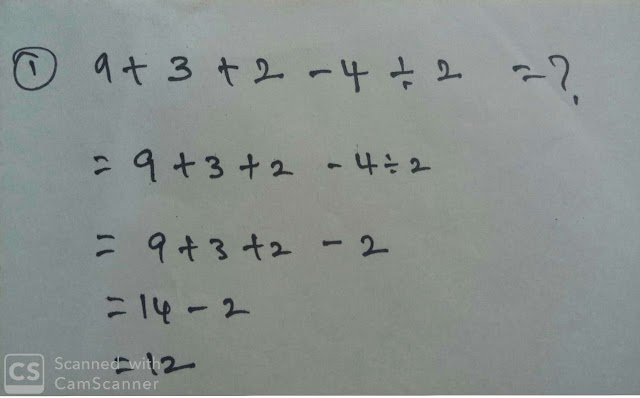 ① 9 + 3 + 2 - 4 ÷ 2 = ?
= 9 + 3 + 2 - 4 ÷ 2
= 9 + 3 + 2 - 2
= 14 - 2
= 12
CS Scanned with
CamScanner